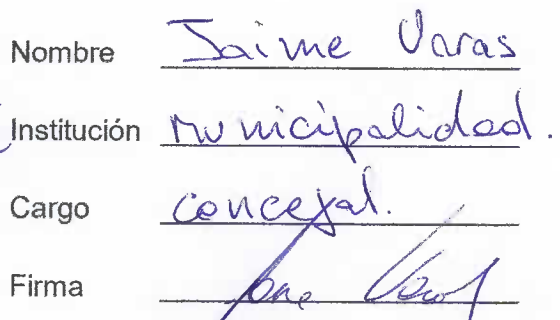 Nombre Jaime Varas
Institución Municipalidad.
Cargo concejal.
Firma